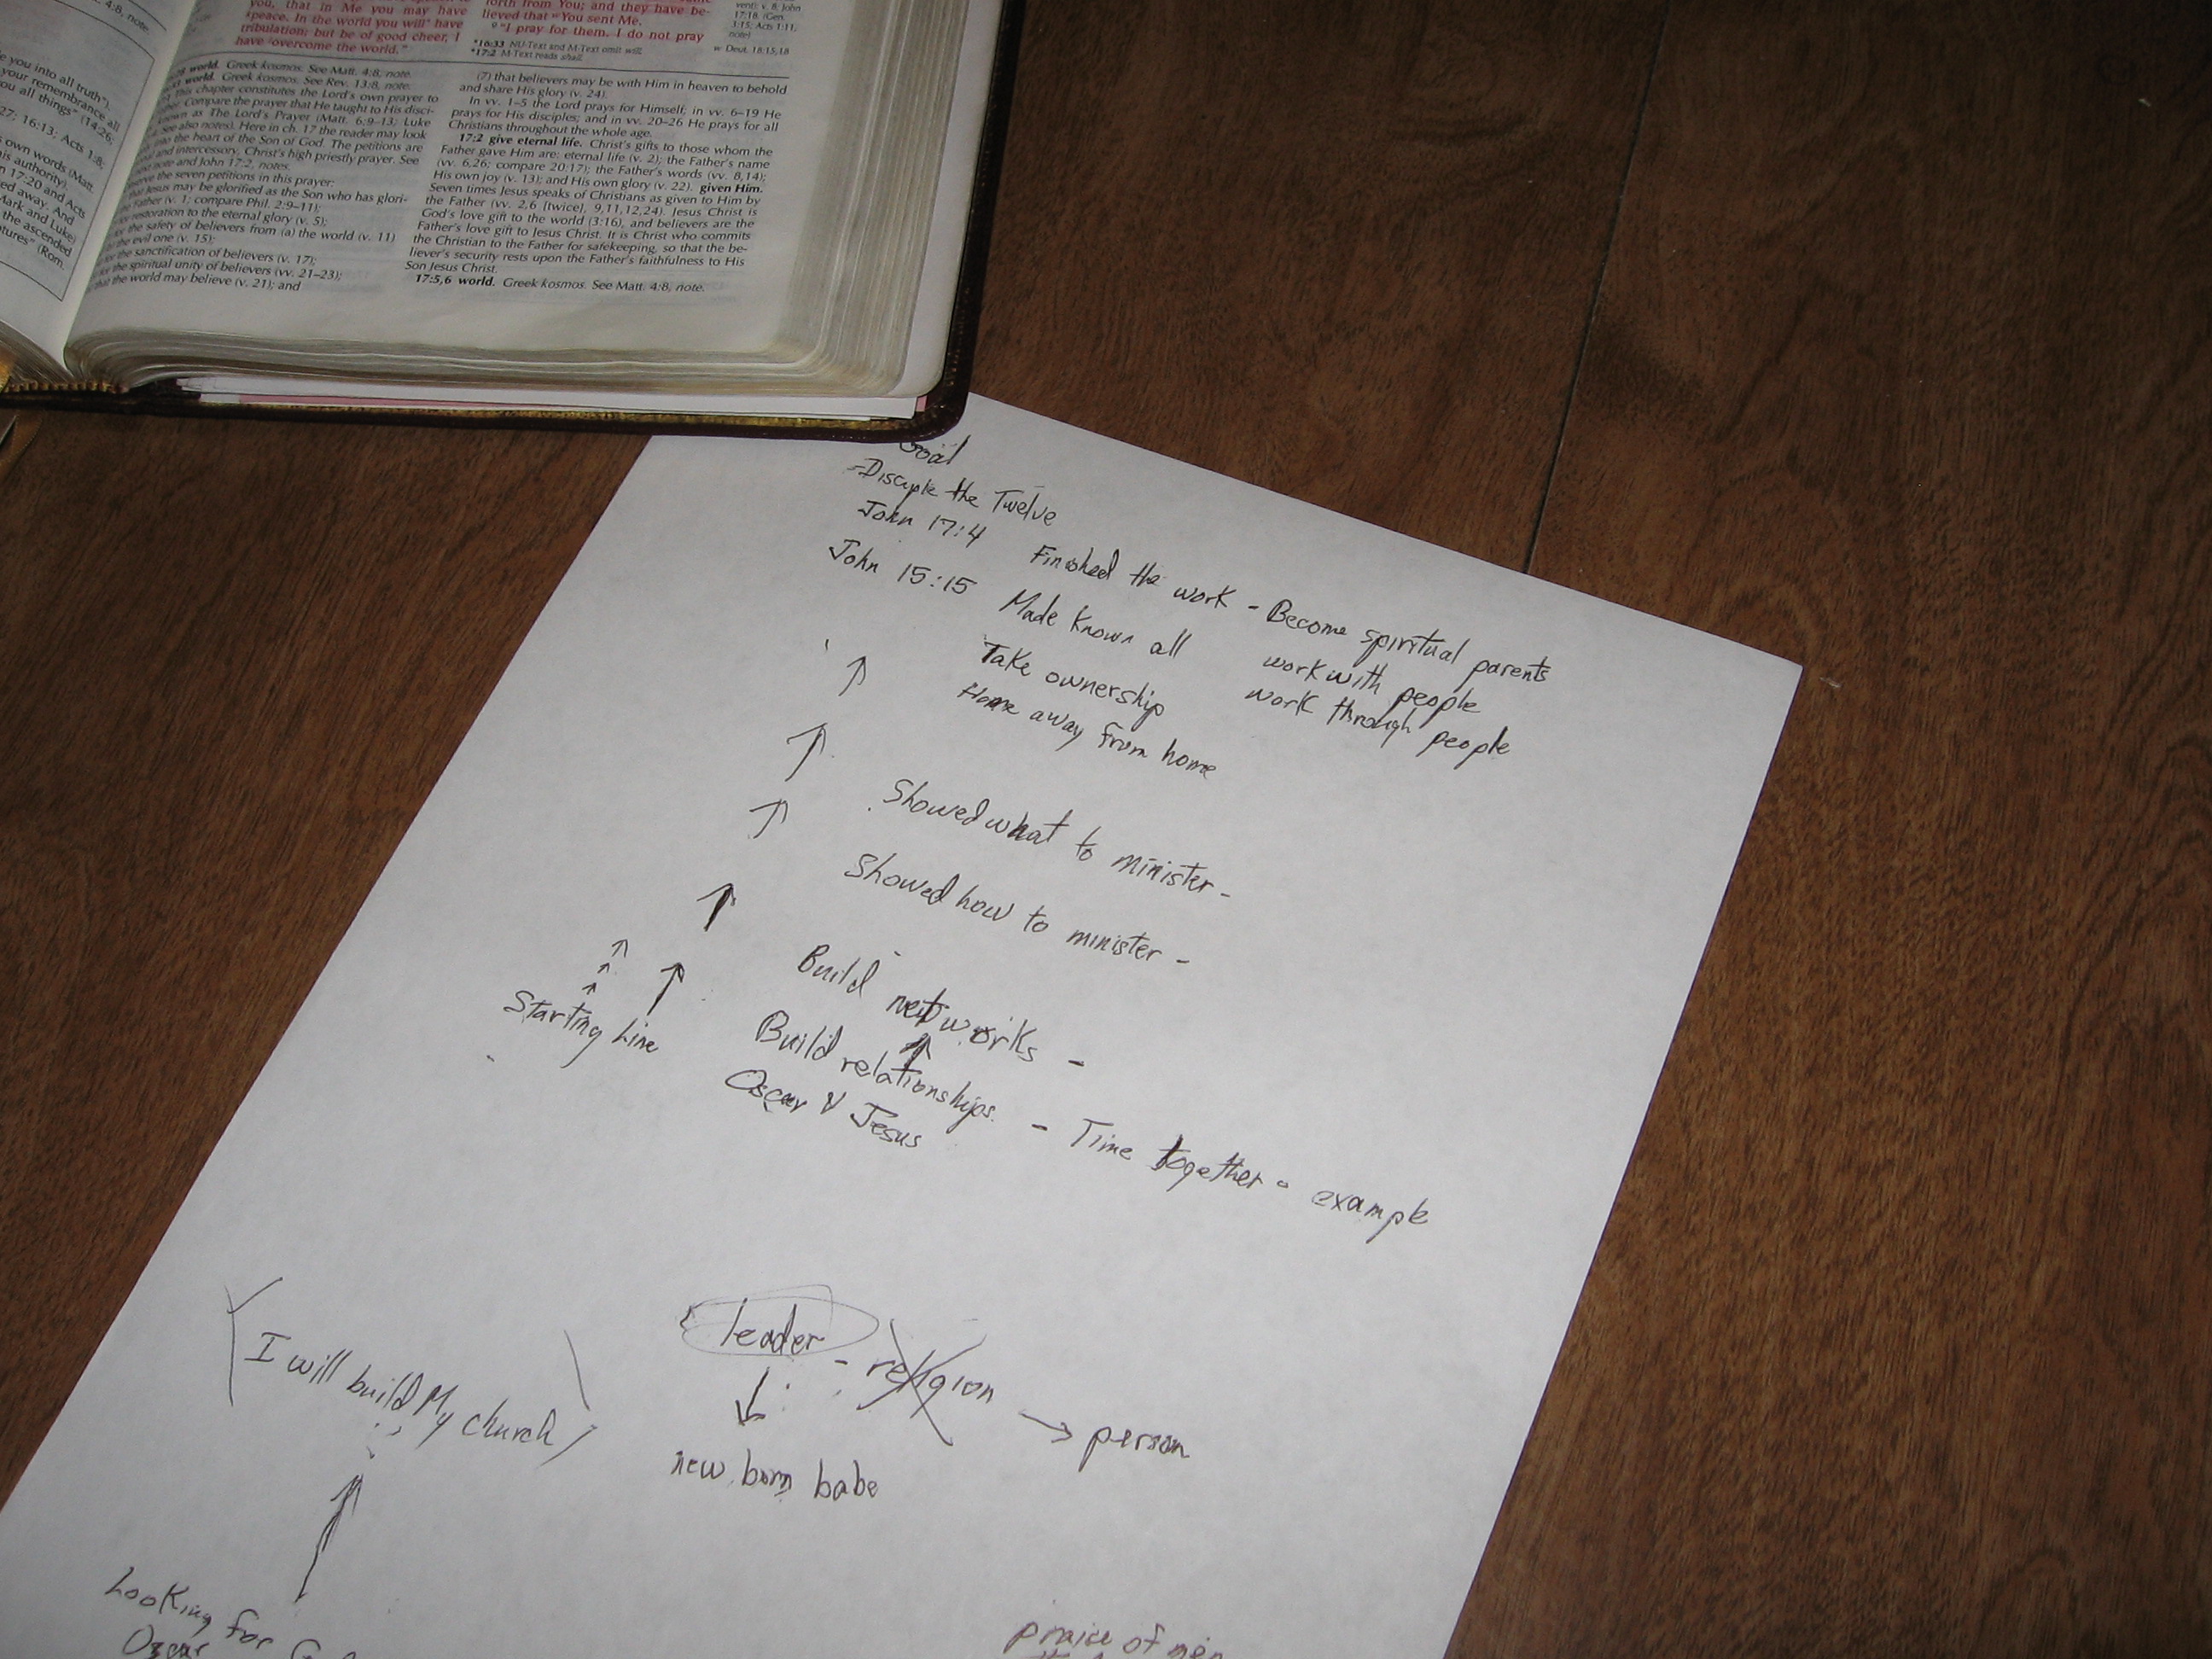 4:8, note.
e you into all truth").
your remembrance all
ou all things" (14:26;
27; 16:13; Acts 1:8;
own words (Matt.
is authority).
n 17:20 and Acts
ed away. And
Mark and Luke)
the ascended
tures" (Rom.
you, that in Me you may have
peace. In the world you will have
tribulation; but be of good cheer, I
have overcome the world."
forth from You; and they have be-
lieved that You sent Me.
9 "I pray for them. I do not pray
*16:33 NU-Text and M-Text omit will.
*17:2 M-Text reads shall.
vent): v. 8; John
17:18. (Gen.
3:15; Acts 1:11,
note)
w Deut. 18:15,18
world. Greek kosmos. See Matt. 4:8, note.
world. Greek kosmos. See Rev. 13:8, note.
This chapter constitutes the Lord's own prayer to
Compare the prayer that He taught to His disci-
known as The Lord's Prayer (Matt. 6:9–13; Luke
See also notes). Here in ch. 17 the reader may look
into the heart of the Son of God. The petitions are
and intercessory. Christ's high priestly prayer. See
note and John 17:2, notes.
the seven petitions in this prayer:
that Jesus may be glorified as the Son who has glori-
Father (v. 1; compare Phil. 2:9–11);
restoration to the eternal glory (v. 5);
for the safety of believers from (a) the world (v. 11)
the evil one (v. 15);
for the sanctification of believers (v. 17);
for the spiritual unity of believers (vv. 21–23);
that the world may believe (v. 21); and
(7) that believers may be with Him in heaven to behold
and share His glory (v. 24).
In vv. 1–5 the Lord prays for Himself; in vv. 6–19 He
prays for His disciples; and in vv. 20–26 He prays for all
Christians throughout the whole age.
17:2 give eternal life. Christ's gifts to those whom the
Father gave Him are: eternal life (v. 2); the Father's name
(vv. 6,26; compare 20:17); the Father's words (vv. 8,14);
His own joy (v. 13); and His own glory (v. 22). given Him.
Seven times Jesus speaks of Christians as given to Him by
the Father (vv. 2,6 [twice], 9,11,12,24). Jesus Christ is
God's love gift to the world (3:16), and believers are the
Father's love gift to Jesus Christ. It is Christ who commits
the Christian to the Father for safekeeping, so that the be-
liever's security rests upon the Father's faithfulness to His
Son Jesus Christ.
17:5,6 world. Greek kosmos. See Matt. 4:8, note.
Goal
-Disciple the Twelve
John 17:4 Finished the work - Become spiritual parents
John 15:15 Made known all work with people
Take ownership work through people
Home away from home
Showed what to minister -
Showed how to minister -
Build networks -
Starting Line
Build relationships - Time together - example
Oscar & Jesus
I will build My church
leader - religion → person
new born babe
Looking for
Oscar
praise of men